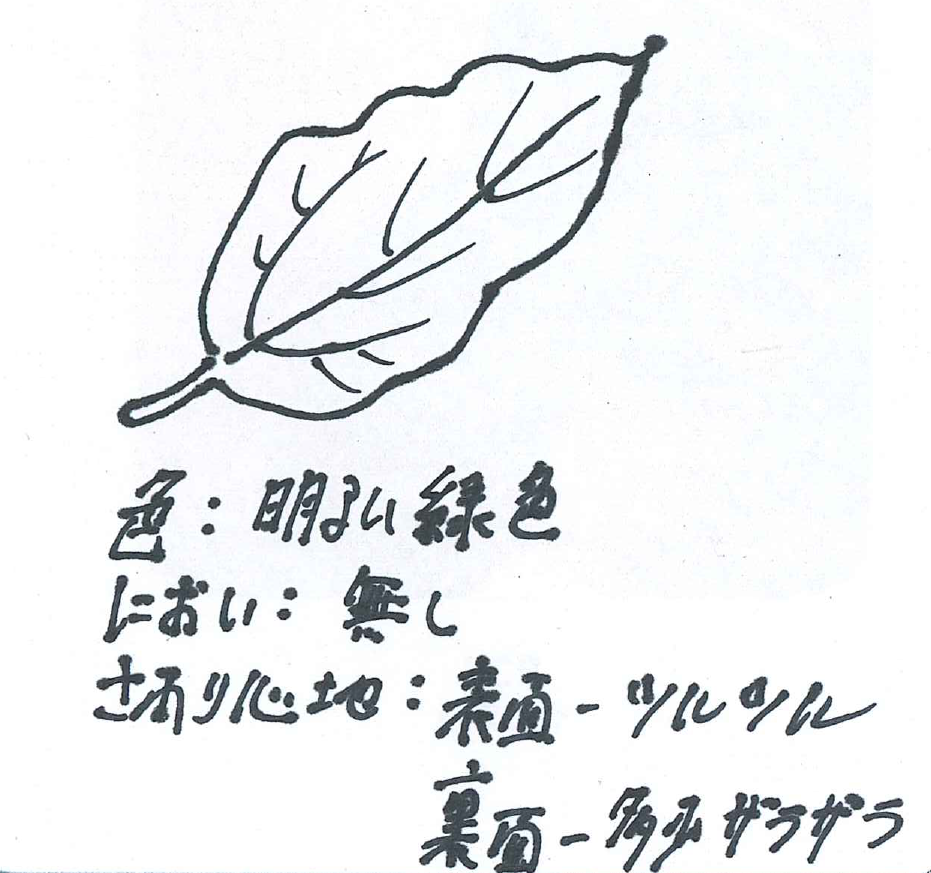 色：明るい緑色
におい：無し
さわり心地：表面－ツルツル
裏面－多少ザラザラ